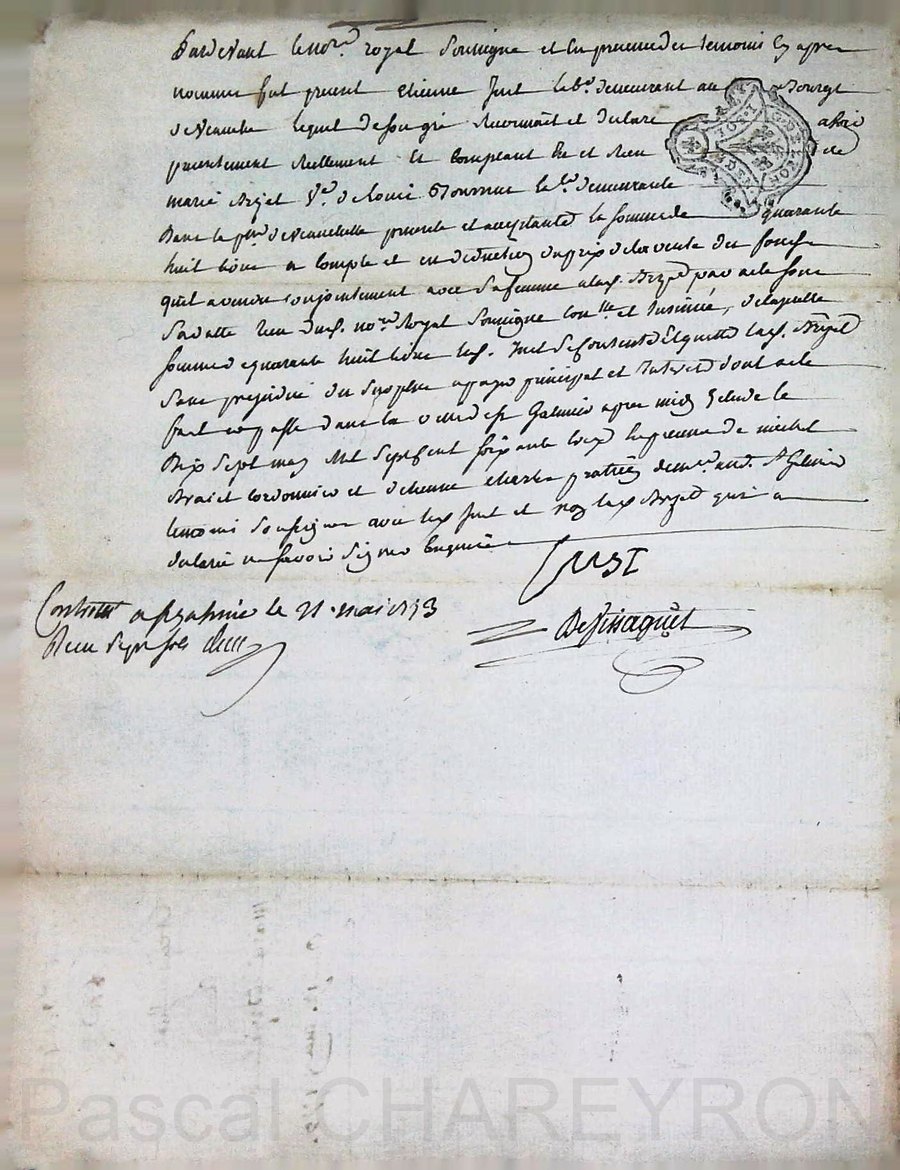 Pardevant le no.re royal soussigné et en presence des temoins cy apres
nommes fut present etienne Just lab.r demeurant au Bourgt
de Veauche lequel de son gré reconnoit et declare avoir
presentement reellement et comptant Eu et recu de
marie Brizet V.e de louis tourne le.l demeurante
dans la p.sse de Veauchette presente et acceptante la somme de quarante
huit livre a compte et en deduction du prix de la vente des fonds
quil a vendu conjointement avec sa femme a lad. Brizet par acte
Sur ce receu dud. no.re Royal soussigné con.llé et Insinué, de laquelle
somme de quarante huit livre led. Just se contente et quitte lad. Brizet
sans prejudice du surplus a payer principal et Interet dont acte
fait et passé dans la ville de st Galmier apres midy le
Dix sept may Mil sept cent soixante treze En presence de michel
cordonnier et d'etienne charles praticien dem.t aud. st Galmier
temoins soussignes avec led. Just et non lad. Brizet qui a
declaré ne savoir signer Enquise
JUST
Controllé a st galmier le 21 mai 1773
Recu sept sols
Pascal CHAREYRON